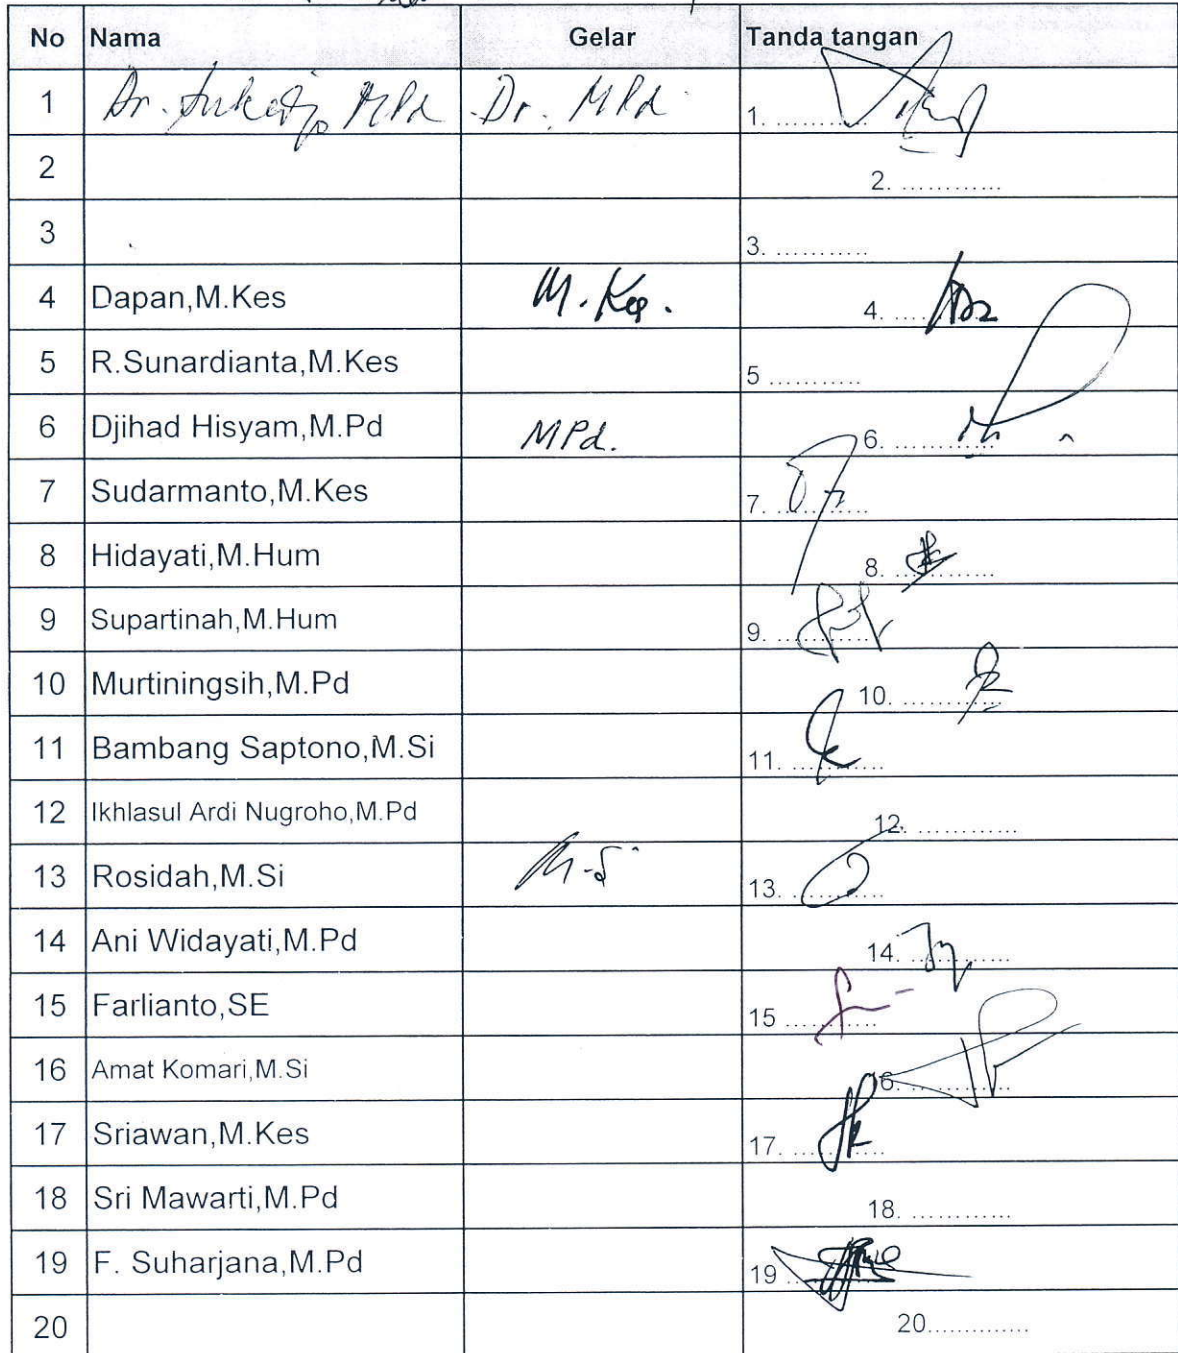 No Nama Gelar Tanda tangan
1 Dr. Sukarjo, MPd Dr. MPd 1. ...........
2 2. ............
3 3. ...........
4 Dapan,M.Kes M.Kes. 4. ............
5 R.Sunardianta,M.Kes 5 ...........
6 Djihad Hisyam,M.Pd MPd. 6. ............
7 Sudarmanto,M.Kes 7. ...........
8 Hidayati,M.Hum 8. ............
9 Supartinah,M.Hum 9. ............
10 Murtiningsih,M.Pd 10. ............
11 Bambang Saptono,M.Si 11. ............
12 Ikhlasul Ardi Nugroho,M.Pd 12. ............
13 Rosidah,M.Si M.Si 13. ............
14 Ani Widayati,M.Pd 14. ............
15 Farlianto,SE 15 ............
16 Amat Komari,M.Si 16. ............
17 Sriawan,M.Kes 17. ............
18 Sri Mawarti,M.Pd 18. ............
19 F. Suharjana,M.Pd 19 ............
20 20..............